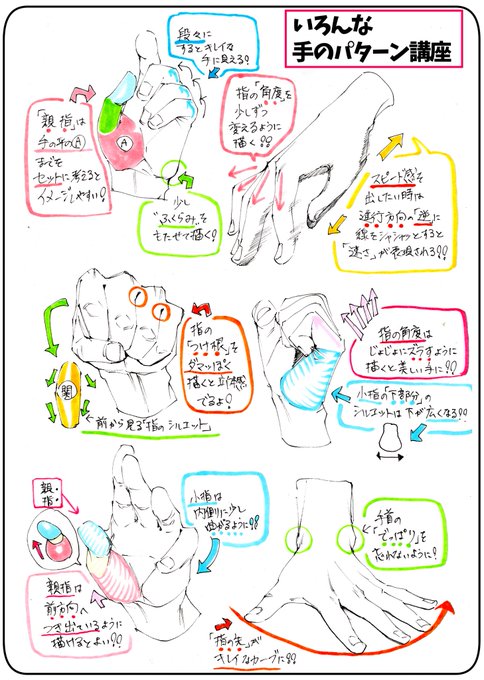 いろんな
手のパターン講座
段々に
するとキレイな
手に見える?
「親指」は
手の平のⒶ
までを
セットに考えると
イメージしやすい!
Ⓐ
指の「角度」を
少しずつ
変えるように
描く!!
少し
"ふくらみ"を
もたせて描く!
スピード感を
出したい時は
進行方向の「逆」に
線をシャシャッとすると
「速さ」が表現される!!
指の
「つけ根」を
ダマッぽく
描くと立体感
でるよ!
関
前から見る「指のシルエット」
指の角度は
じょじょにズラすように
描くと美しい手に!!
小指の「下部分」の
シルエットは下が広くなる!!
親・
指・
小指は
内側に少し
曲がるように!!
手首の
「でっぱり」を
忘れないように!
親指は
前方向へ
つき出ているように
描けるとよい!!
「指の先」が
キレイなカーブに!!